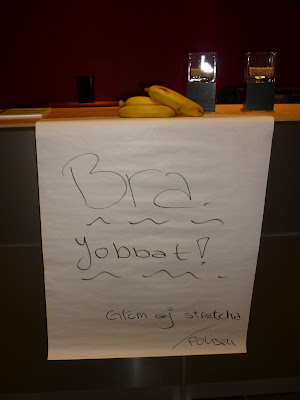 Bra.
Jobbat!
Glöm ej stretcha
/Polisen